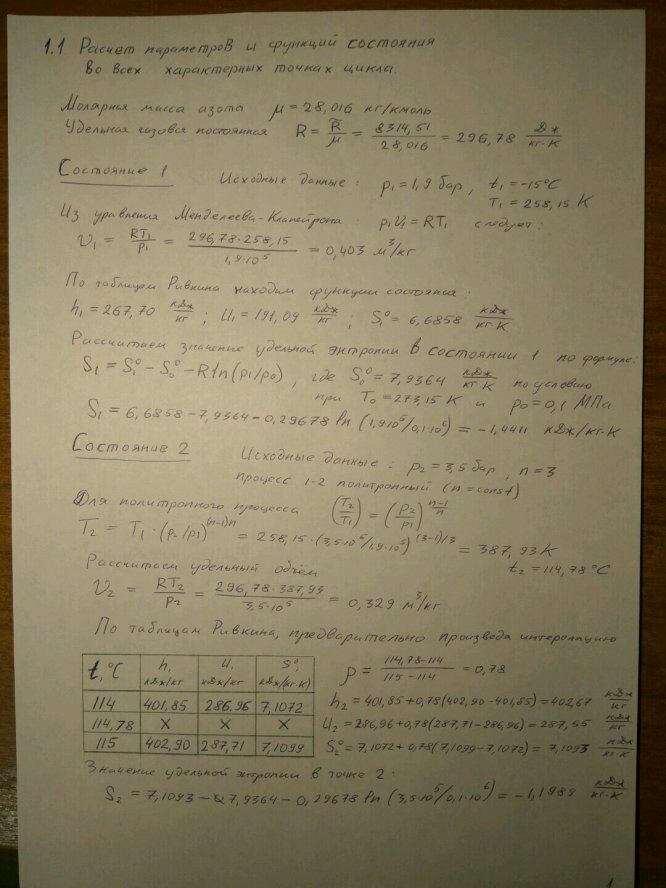 1.1. Расчет параметров и функций состояния
во всех характерных точках цикла.
Молярная масса азота μ = 28,016 кг/кмоль
Удельная газовая постоянная R = R̃/μ = 8314,51/28,016 = 296,78 Дж/кг·К
Состояние 1 Исходные данные: p₁ = 1,9 бар, t₁ = -15°C
T₁ = 258,15 К
Из уравнения Менделеева-Клапейрона: p₁υ₁ = RT₁ следует:
υ₁ = RT₁/p₁ = 296,78·258,15/1,9·10⁵ = 0,403 м³/кг
По таблицам Ривкина находим функции состояния:
h₁ = 267,70 кДж/кг; u₁ = 191,09 кДж/кг; S₁⁰ = 6,6858 кДж/кг·К
Рассчитаем значение удельной энтропии в состоянии 1 по формуле:
S₁ = S₁⁰ - S₀⁰ - R ln(p₁/p₀), где S₀⁰ = 7,9364 кДж/кг·К по условию
при T₀ = 273,15 К и p₀ = 0,1 МПа
S₁ = 6,6858 - 7,9364 - 0,29678 ln(1,9·10⁵/0,1·10⁶) = -1,4411 кДж/кг·К
Состояние 2 Исходные данные: p₂ = 3,5 бар, n = 3
процесс 1-2 политропный (n = const)
Для политропного процесса (T₂/T₁) = (p₂/p₁)^(n-1)/n
T₂ = T₁·(p₂/p₁)^(n-1)/n = 258,15·(3,5·10⁵/1,9·10⁵)^(3-1)/3 = 387,93 К
t₂ = 114,78°C
Рассчитаем удельный объём
υ₂ = RT₂/p₂ = 296,78·387,93/3,5·10⁵ = 0,329 м³/кг
По таблицам Ривкина, предварительно произведя интерполяцию
t, °C h, кДж/кг u, кДж/кг S⁰, кДж/(кг·К)
114 401,85 286,96 7,1072
114,78 X X X
115 402,90 287,71 7,1099
ρ = 114,78-114/115-114 = 0,78
h₂ = 401,85 + 0,78(402,90-401,85) = 402,67 кДж/кг
u₂ = 286,96 + 0,78(287,71-286,96) = 287,55 кДж/кг
S₂⁰ = 7,1072 + 0,78(7,1099-7,1072) = 7,1093 кДж/кг·К
Значение удельной энтропии в точке 2:
S₂ = 7,1093 - 7,9364 - 0,29678 ln(3,5·10⁵/0,1·10⁶) = -1,1989 кДж/кг·К
1